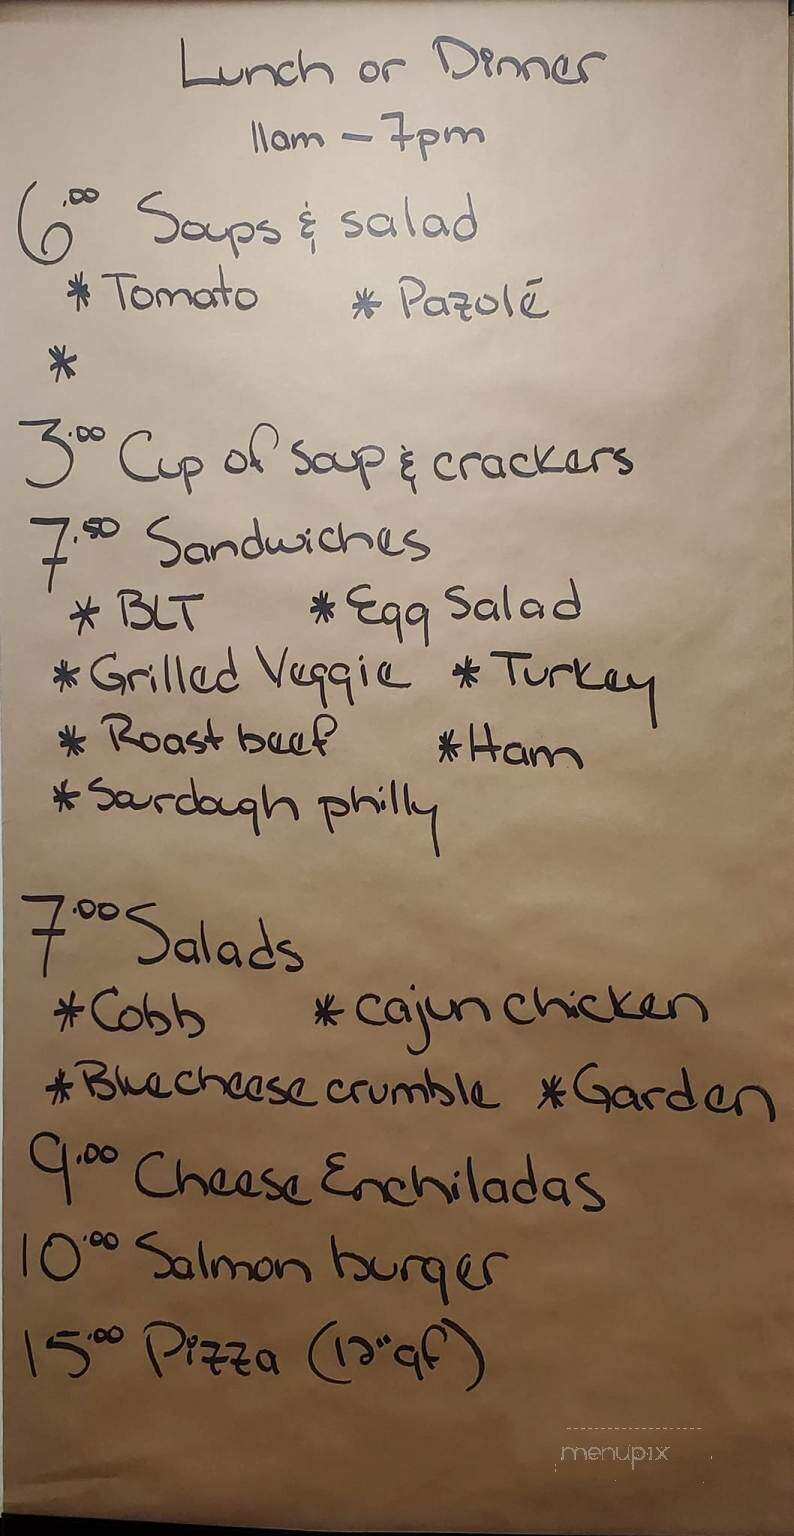 Lunch or Dinner
11am - 7pm
6.00 Soups & salad
* Tomato * Pazolé
*
3.00 Cup of Soup & crackers
7.50 Sandwiches
* BLT * Egg Salad
* Grilled Veggie * Turkey
* Roast beef * Ham
* Sourdough philly
7.00 Salads
* Cobb * Cajun chicken
* Blue cheese crumble * Garden
9.00 Cheese Enchiladas
10.00 Salmon burger
15.00 Pizza (12" gf)
menupix